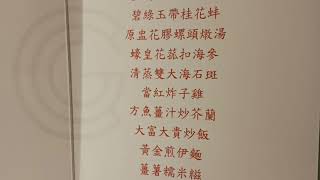 碧綠玉帶桂花蚌
原盅花膠螺頭燉湯
蠔皇花菰扣海參
清蒸雙大海石斑
當紅炸子雞
方魚薑汁炒芥蘭
大富大貴炒飯
黃金煎伊麵
薑薯糯米糍